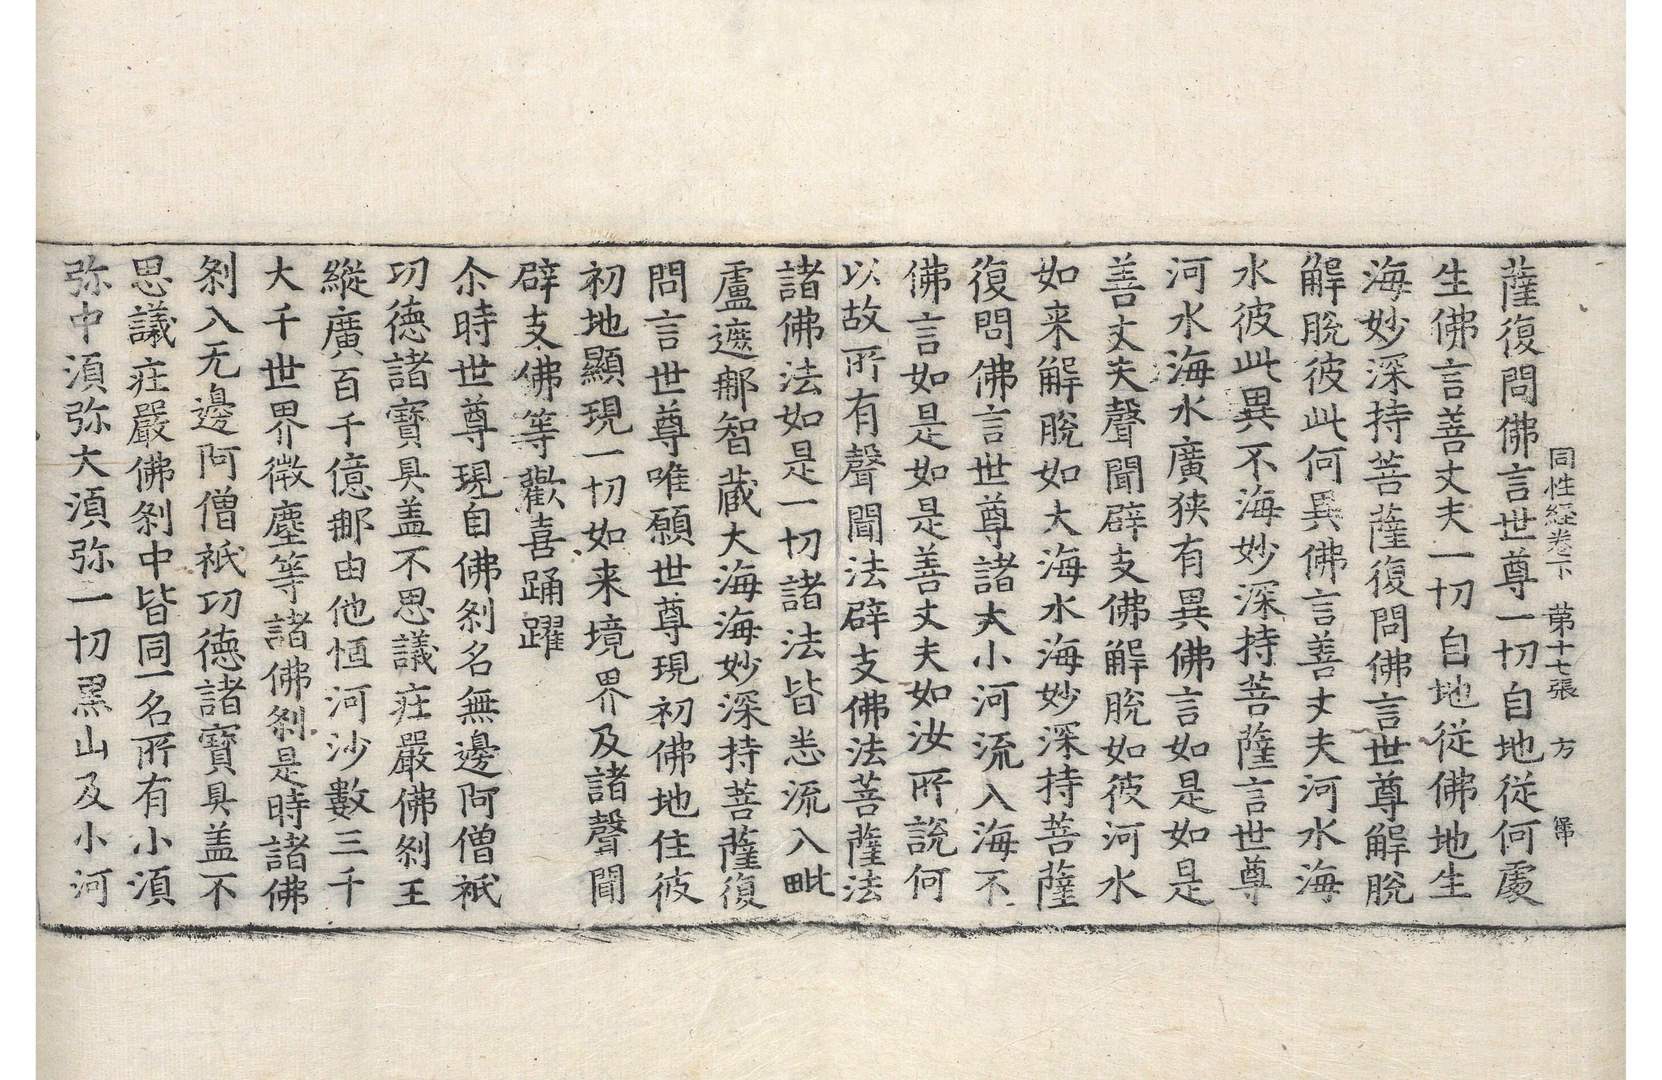 同性経卷下 苐十七張 方
薩復問佛言世尊一切自地従何處
生佛言善丈夫一切自地従佛地生
海妙深持菩薩復問佛言世尊解脱
解脱彼此何異佛言善丈夫河水海
水彼此異不海妙深持菩薩言世尊
河水海水廣狭有異佛言如是如是
善丈夫聲聞辟支佛解脱如彼河水
如来解脱如大海水海妙深持菩薩
復問佛言世尊諸大小河流入海不
佛言如是如是善丈夫如汝所說何
以故所有聲聞法辟支佛法菩薩法
諸佛法如是一切諸法皆悉流入毗
盧遮那智藏大海海妙深持菩薩復
問言世尊唯願世尊現初佛地住彼
初地顯現一切如来境界及諸聲聞
辟支佛等歡喜踊躍
尒時世尊現自佛刹名無邊阿僧祇
功徳諸寳具盖不思議莊嚴佛刹王
縱廣百千億那由他恒河沙數三千
大千世界微塵等諸佛刹是時諸佛
刹入无邊阿僧祇功徳諸寳具盖不
思議莊嚴佛刹中皆同一名所有小湏
弥中湏弥大湏弥一切黒山及小河